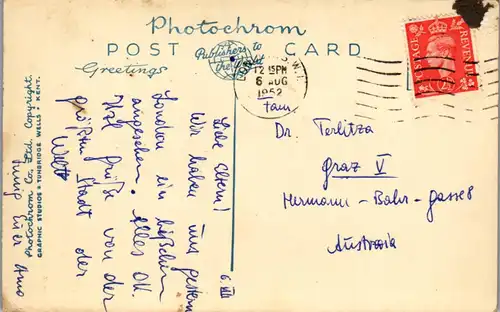 Photochrom
POST CARD
Publishers to
the World
Greetings
LONDON S.W.1.
12 15PM
6 AUG
1952
POSTAGE REVENUE
Photochrom Co. Ltd. Copyright.
GRAPHIC STUDIOS • TUNBRIDGE WELLS • KENT.
6. VIII
Liebe Eltern!
Wir haben uns gestern
London ein bißchen
angesehen. Alles OK.
Viele Grüße von der
größten Stadt der
Welt
Euer Arno
Fam
Dr. Terlitza
Graz V
Hermann-Bahr-Gasse 8
Austria